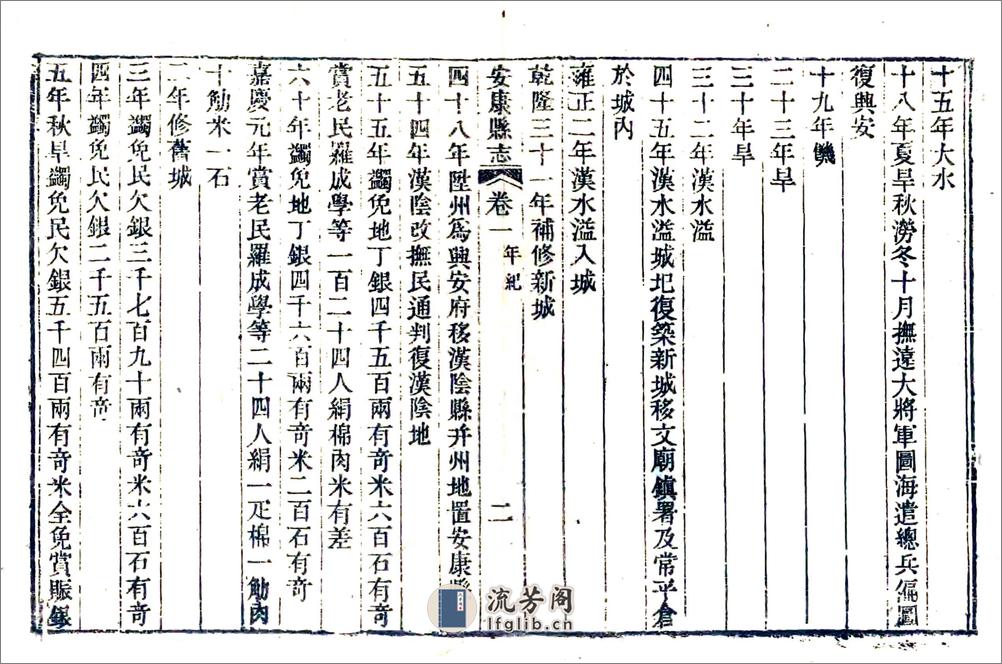 十五年大水
十八年夏旱秋澇冬十月撫遠大將軍圖海遣總兵偏圖
復興安
十九年饑
二十三年旱
三十年旱
三十二年漢水溢
四十五年漢水溢城圮復築新城移文廟鎮署及常平倉
於城內
雍正二年漢水溢入城
乾隆三十一年補修新城
安康縣志 卷一 年紀 二
四十八年陞州為興安府移漢陰縣并州地置安康縣
五十四年漢陰改撫民通判復漢陰地
五十五年蠲免地丁銀四千五百兩有奇米六百石有奇
賞老民羅成學等一百二十四人絹棉肉米有差
六十年蠲免地丁銀四千六百兩有奇米二百石有奇
嘉慶元年賞老民羅成學等二十四人絹一疋棉一觔肉
十觔米一石
二年修舊城
三年蠲免民欠銀三千七百九十兩有奇米六百石有奇
四年蠲免民欠銀二千五百兩有奇
五年秋旱蠲免民欠銀五千四百兩有奇米全免賞賑銀
流芳阁
lfglib.cn